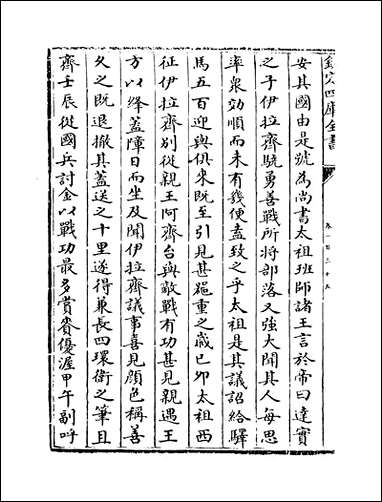 欽定四庫全書
卷一百三十五
安其國由是號為尚書太祖班師諸王言於帝曰達實
之子伊拉齊驍勇善戰所將部落又強大聞其人每思
率衆効順而未有幾便盍致之乎太祖是其議詔給驛
馬五百迎與俱來既至引見甚寵重之歲己卯太祖西
征伊拉齊別從親王阿齊台與敵戰有功甚見親遇王
方以絳蓋障日而坐及聞伊拉齊議事喜見顔色稱善
久之既退撤其蓋送之十里遂得兼長四環衛之筆且
齊壬辰從國兵討金以戰功最多賞賚優渥甲午副呼